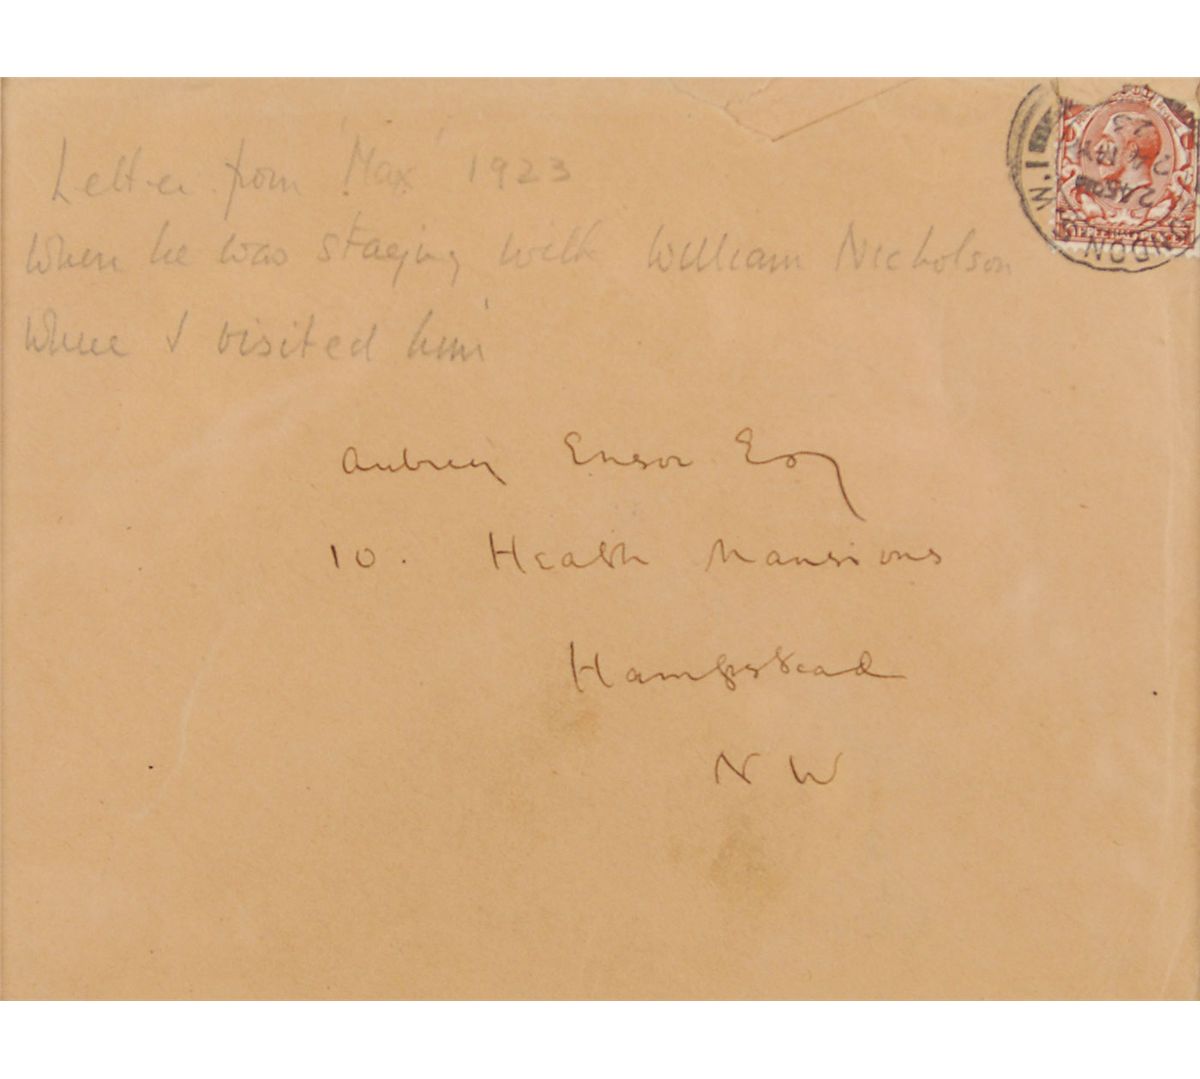 Letter from 'Max' 1923
When he was staying with William Nicholson
where I visited him
Aubrey Ensor Esq
10. Heath Mansions
Hampstead
N W
LONDON W.1
2.45 PM
23